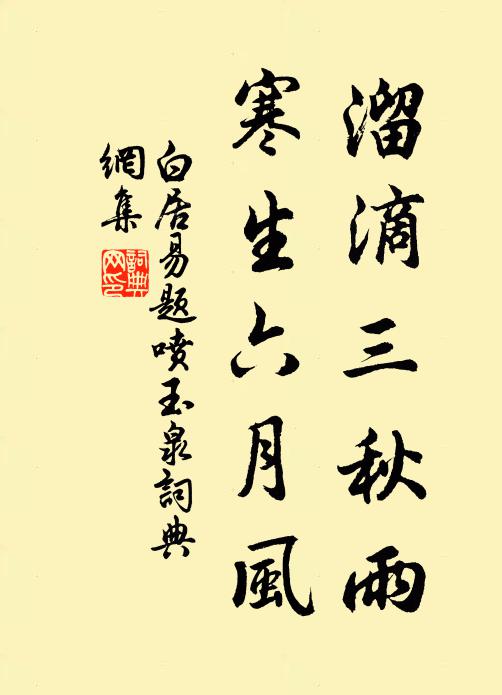 溜滴三秋雨
寒生六月風
白居易題噴玉泉詞典
網集
詞典
网印